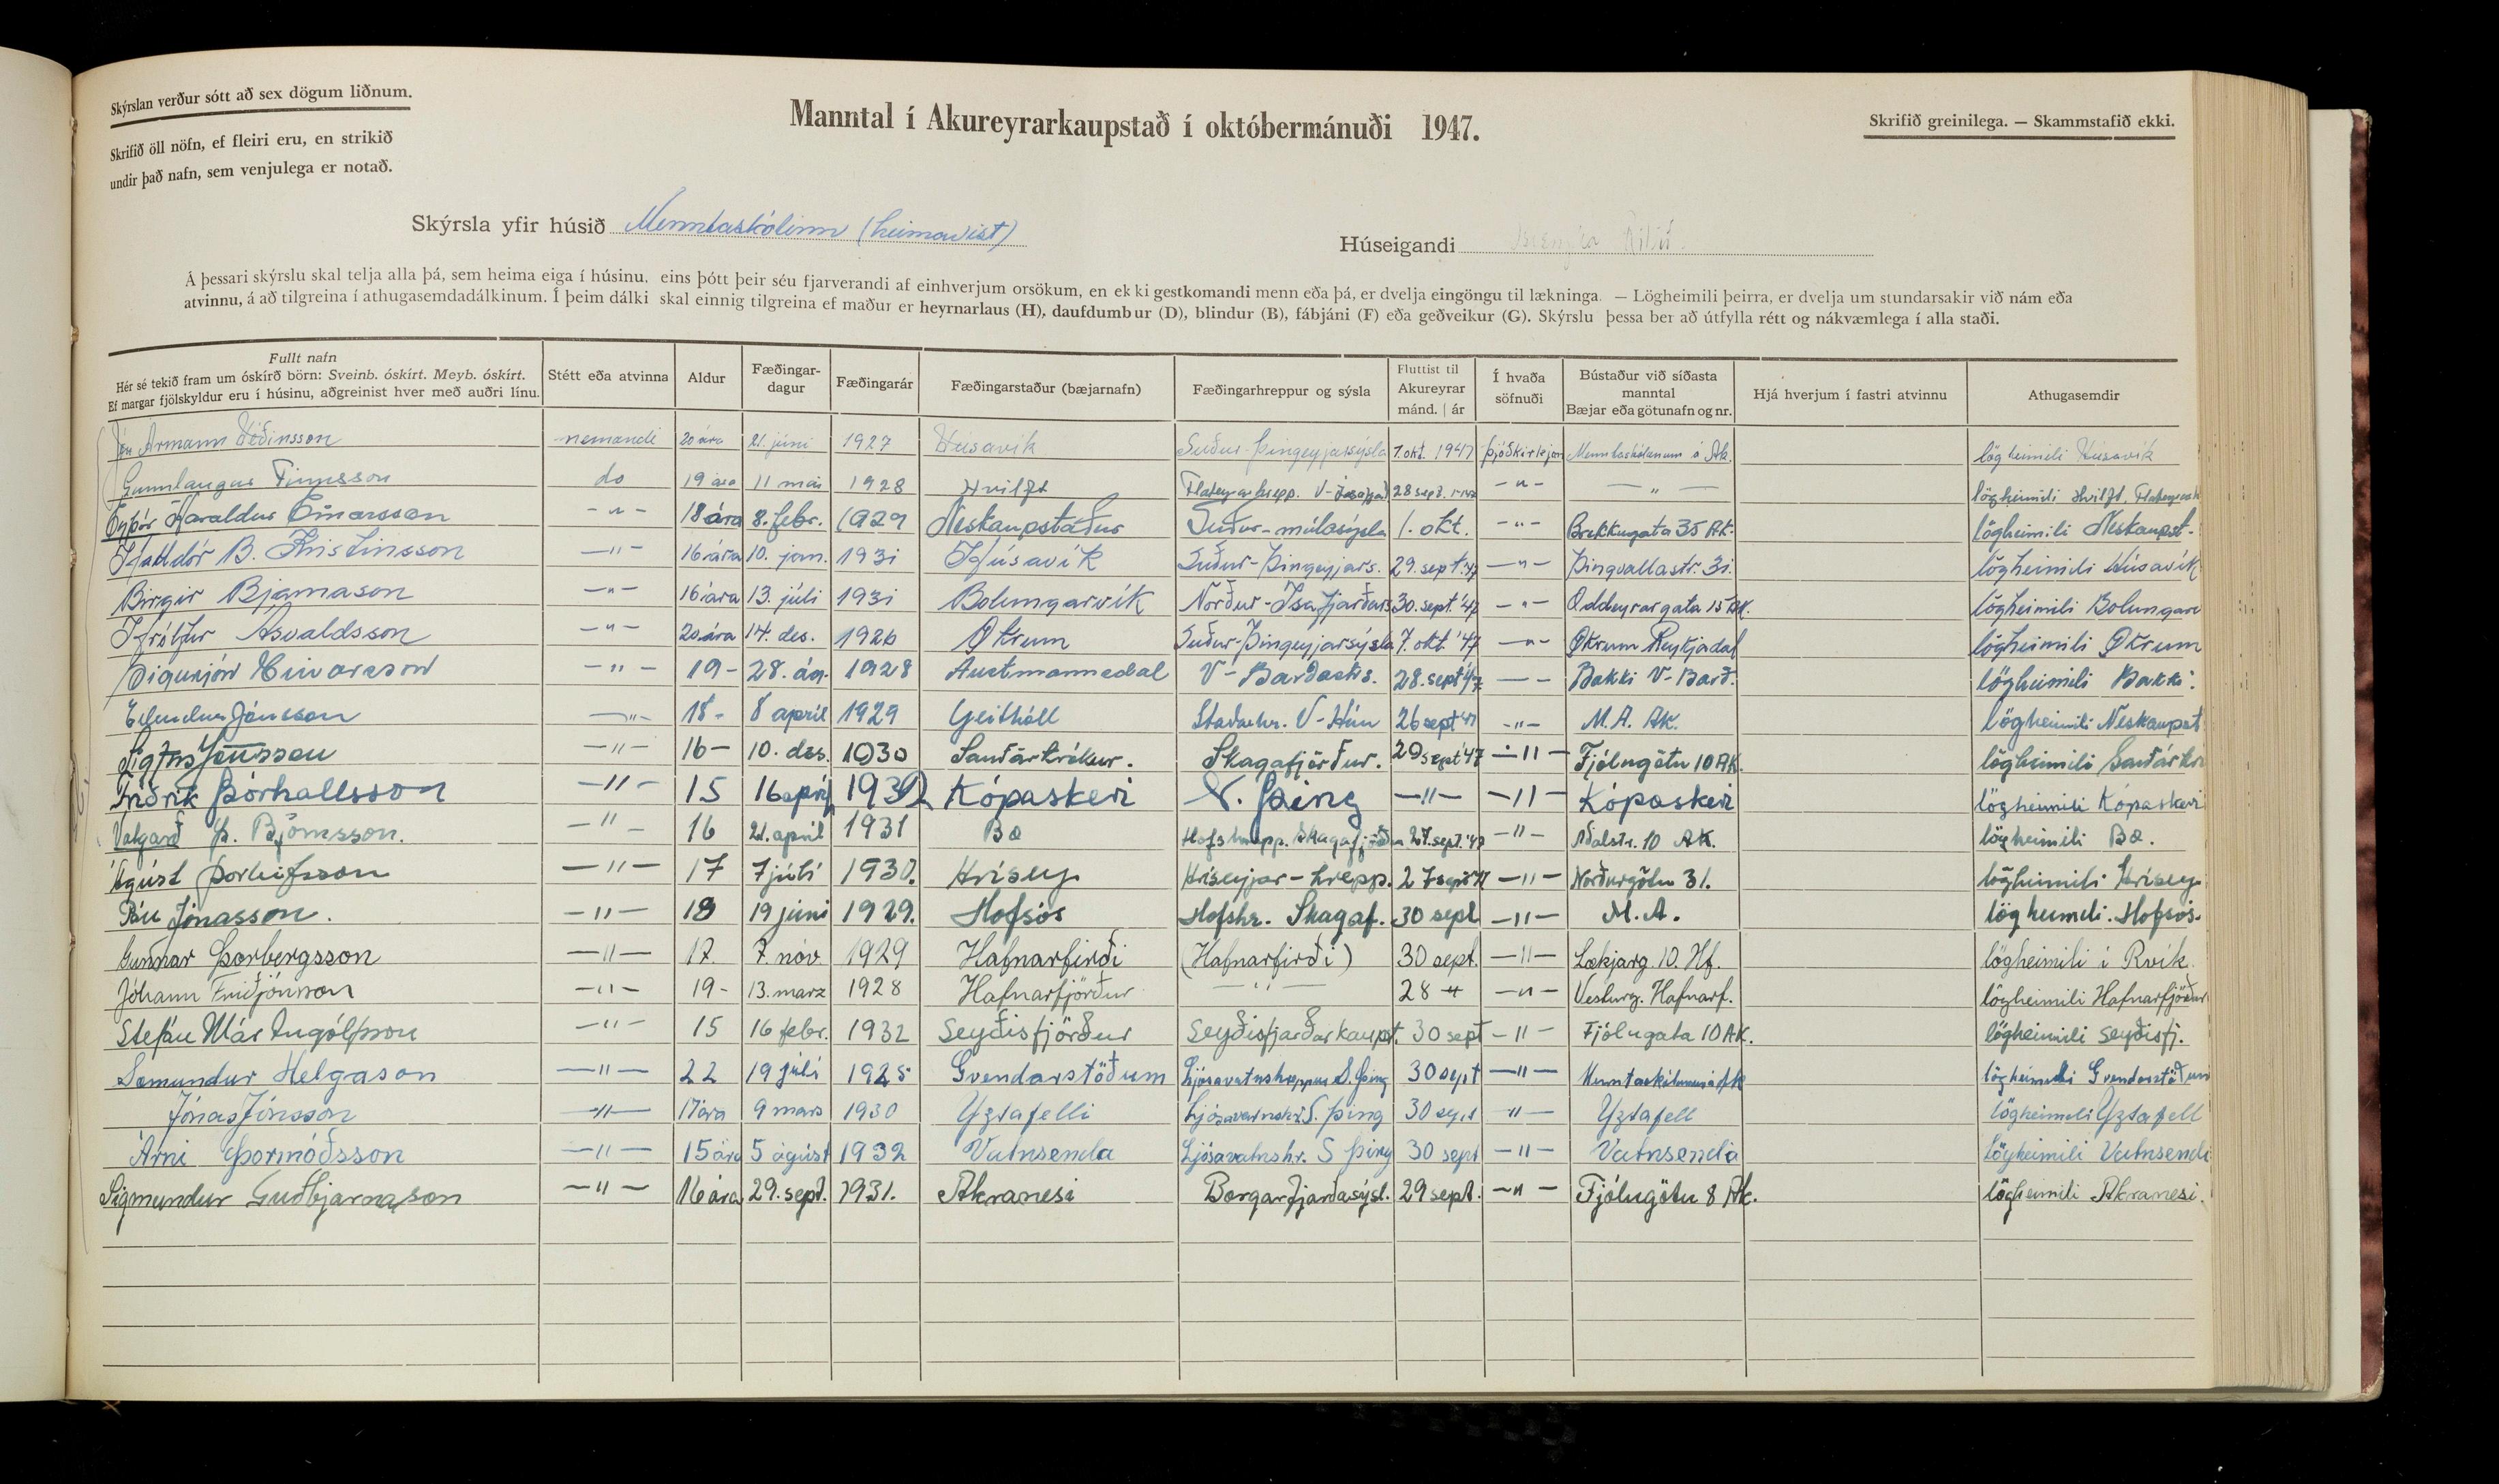 Skýrslan verður sótt að sex dögum liðnum.
Skrifið öll nöfn, ef fleiri eru, en strikið
undir það nafn, sem venjulega er notað.
Manntal í Akureyrarkaupstað í októbermánuði 1947.
Skrifið greinilega. — Skammstafið ekki.
Skýrsla yfir húsið Menntaskólinn (heimavist)
Húseigandi
Á þessari skýrslu skal telja alla þá, sem heima eiga í húsinu, eins þótt þeir séu fjarverandi af einhverjum orsökum, en ekki gestkomandi menn eða þá, er dvelja eingöngu til lækninga. — Lögheimili þeirra, er dvelja um stundarsakir við nám eða
atvinnu, á að tilgreina í athugasemdadálkinum. Í þeim dálki skal einnig tilgreina ef maður er heyrnarlaus (H), daufdumbur (D), blindur (B), fábjáni (F) eða geðveikur (G). Skýrslu þessa ber að útfylla rétt og nákvæmlega í alla staði.
Fullt nafn Hér sé tekið fram um óskírð börn: Sveinb. óskírt. Meyb. óskírt. Ef margar fjölskyldur eru í húsinu, aðgreinist hver með auðri línu. Stétt eða atvinna Aldur Fæðingar-dagur Fæðingarár Fæðingarstaður (bæjarnafn) Fæðingarhreppur og sýsla Fluttist til Akureyrar mánd. | ár Í hvaða söfnuði Bústaður við síðasta manntal Bæjar eða götunafn og nr. Hjá hverjum í fastri atvinnu Athugasemdir
Jón Ármann Héðinsson nemandi 20 ára 21. júní 1927 Húsavík Suður-Þingeyjarsýsla 7. okt. 1947 Þjóðkirkjan Menntaskólanum á Ak. lögheimili Húsavík
Gunnlaugur Finnsson do 19 ára 11 maí 1928 Hvilft Flateyrarhrepp. V-Ísafjað 28 sept. 1947 -"- — " — lögheimili Hvilft,
Eyþór Haraldur Einarsson -"- 18 ára 8. febr. 1929 Neskaupstaður Suður-múlasýsla 1. okt. -"- Brekkugata 35 AK. lögheimili Neskaupst.
Halldór B. Kristinsson —"- 16 ára 10. jan. 1931 Húsavík Suður-Þingeyjars. 29. sept. '47 -"- Þingvallastr. 31. lögheimili Húsavík
Birgir Bjarnason -"- 16 ára 13. júlí 1931 Bolungarvík Norður-Ísafjarðars 30. sept. '47 -"- Oddeyrargata 15 AK. lögheimili Bolungarv
Hrólfur Ásvaldsson -"- 20 ára 14. des. 1926 Ökrum Suður-Þingeyjarsýsla 7. okt '47 -"- Ökrum Reykjadal lögheimili Ökrum
Sigurjón Einarsson -"- 19- 28. ág. 1928 Austmannsdal V-Barðastrs. 28. sept '47 — - Bakki V-Barð. lögheimili Bakki.
Erlendur Jónsson —"- 18- 8 apríl 1929 Geithóll Staðarhr. V-Hún 26 sept '47 -"- M.A. AK. lögheimili Neskaupst
Sigfús Jónsson —"— 16- 10. des. 1930 Sauðárkrókur. Skagafjörður. 29 sept '47 —"— Fjólugötu 10 AK. lögheimili Sauðárkró
Friðrik Þórhallsson —"- 15 16 apríl 1932 Kópaskeri N. Þing —"— —"— Kópaskeri lögheimili Kópaskeri
Valgarð Þ. Björnsson. —"- 16 21. apríl 1931 Bæ Hofshrepp. Skagafjörður 27. sept. '47 —"— Aðalstr. 10 AK. lögheimili Bæ.
Ágúst Þorleifsson —"— 17 7 júlí 1930. Hrísey Hríseyjar-hrepp. 27 sept '47 —"— Norðurgötu 31. lögheimili Hrísey
Páll Jónasson. —"— 18 19 júní 1929. Hofsós Hofshr. Skagaf. 30 sept —"— M.A. lögheimili. Hofsós.
Gunnar Þorbergsson —"— 17. 7. nóv. 1929 Hafnarfirði (Hafnarfirði) 30 sept. —"— Lækjarg. 10. Hf. lögheimili í Rvík
Jóhann Friðjónsson —"— 19- 13. marz 1928 Hafnarfjörður — " — 28 " —"— Vesturg. Hafnarf. lögheimili Hafnarfjörður
Stefán Már Ingólfsson —"— 15 16 febr. 1932 Seyðisfjörður Seyðisfjarðarkaupst. 30 sept —"— Fjólugata 10 AK. lögheimili Seyðisfj.
Sæmundur Helgason —"— 22 19 júlí 1925 Gvendarstöðum Ljósavatnshreppur S. Þing 30 sept —"— Menntaskólanum á Ak lögheimili Gvendarstöðum
Jónas Jónsson —"— 17 ára 9 mars 1930 Yztafelli Ljósavatnshr. S. Þing 30 sept "— Yztafell lögheimili Yztafell
Árni Þormóðsson —"— 15 ára 5 ágúst 1932 Vatnsenda Ljósavatnshr. S Þing 30 sept —"— Vatnsenda lögheimili Vatnsendi
Sigmundur Guðbjarnason —"— 16 ára 29. sept. 1931. Akranesi Borgarfjarðasýsl. 29 sept. —"— Fjólugötu 8 Ak. lögheimili Akranesi.